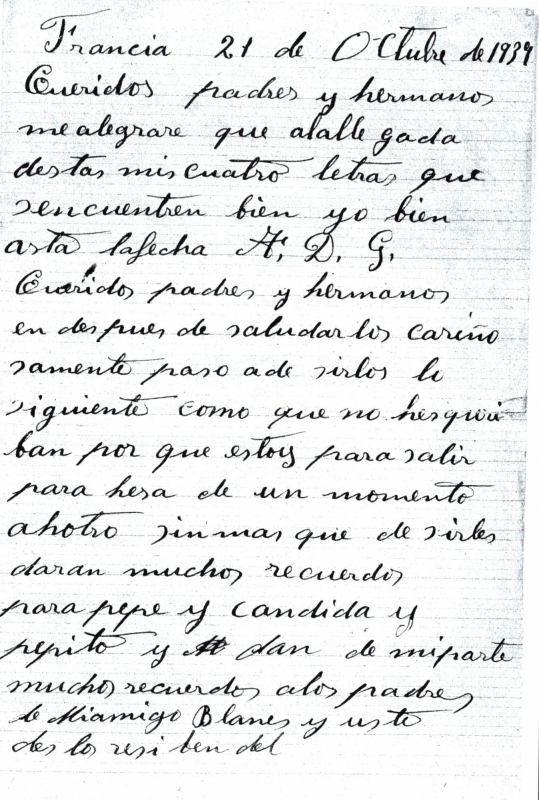 Francia 21 de Octubre de 1939
Queridos padres y hermanos
mealegrare que alalle gada
destas miscuatro letras que
sencuentren bien yo bien
asta lafecha A. D. G.
Queridos padres y hermanos
en des pues de saludarlos cariño
samente paso ade sirlos lo
siguiente como que no hesquri
ban por que estoy para salir
para hesa de un momento
ahotro sinmas que de sirles
daran muchos recuerdos
para pepe y candida y
pepito y dan de miparte
muchos recuerdos alos padres
de Miamigo Blanes y uste
des los resi ben del